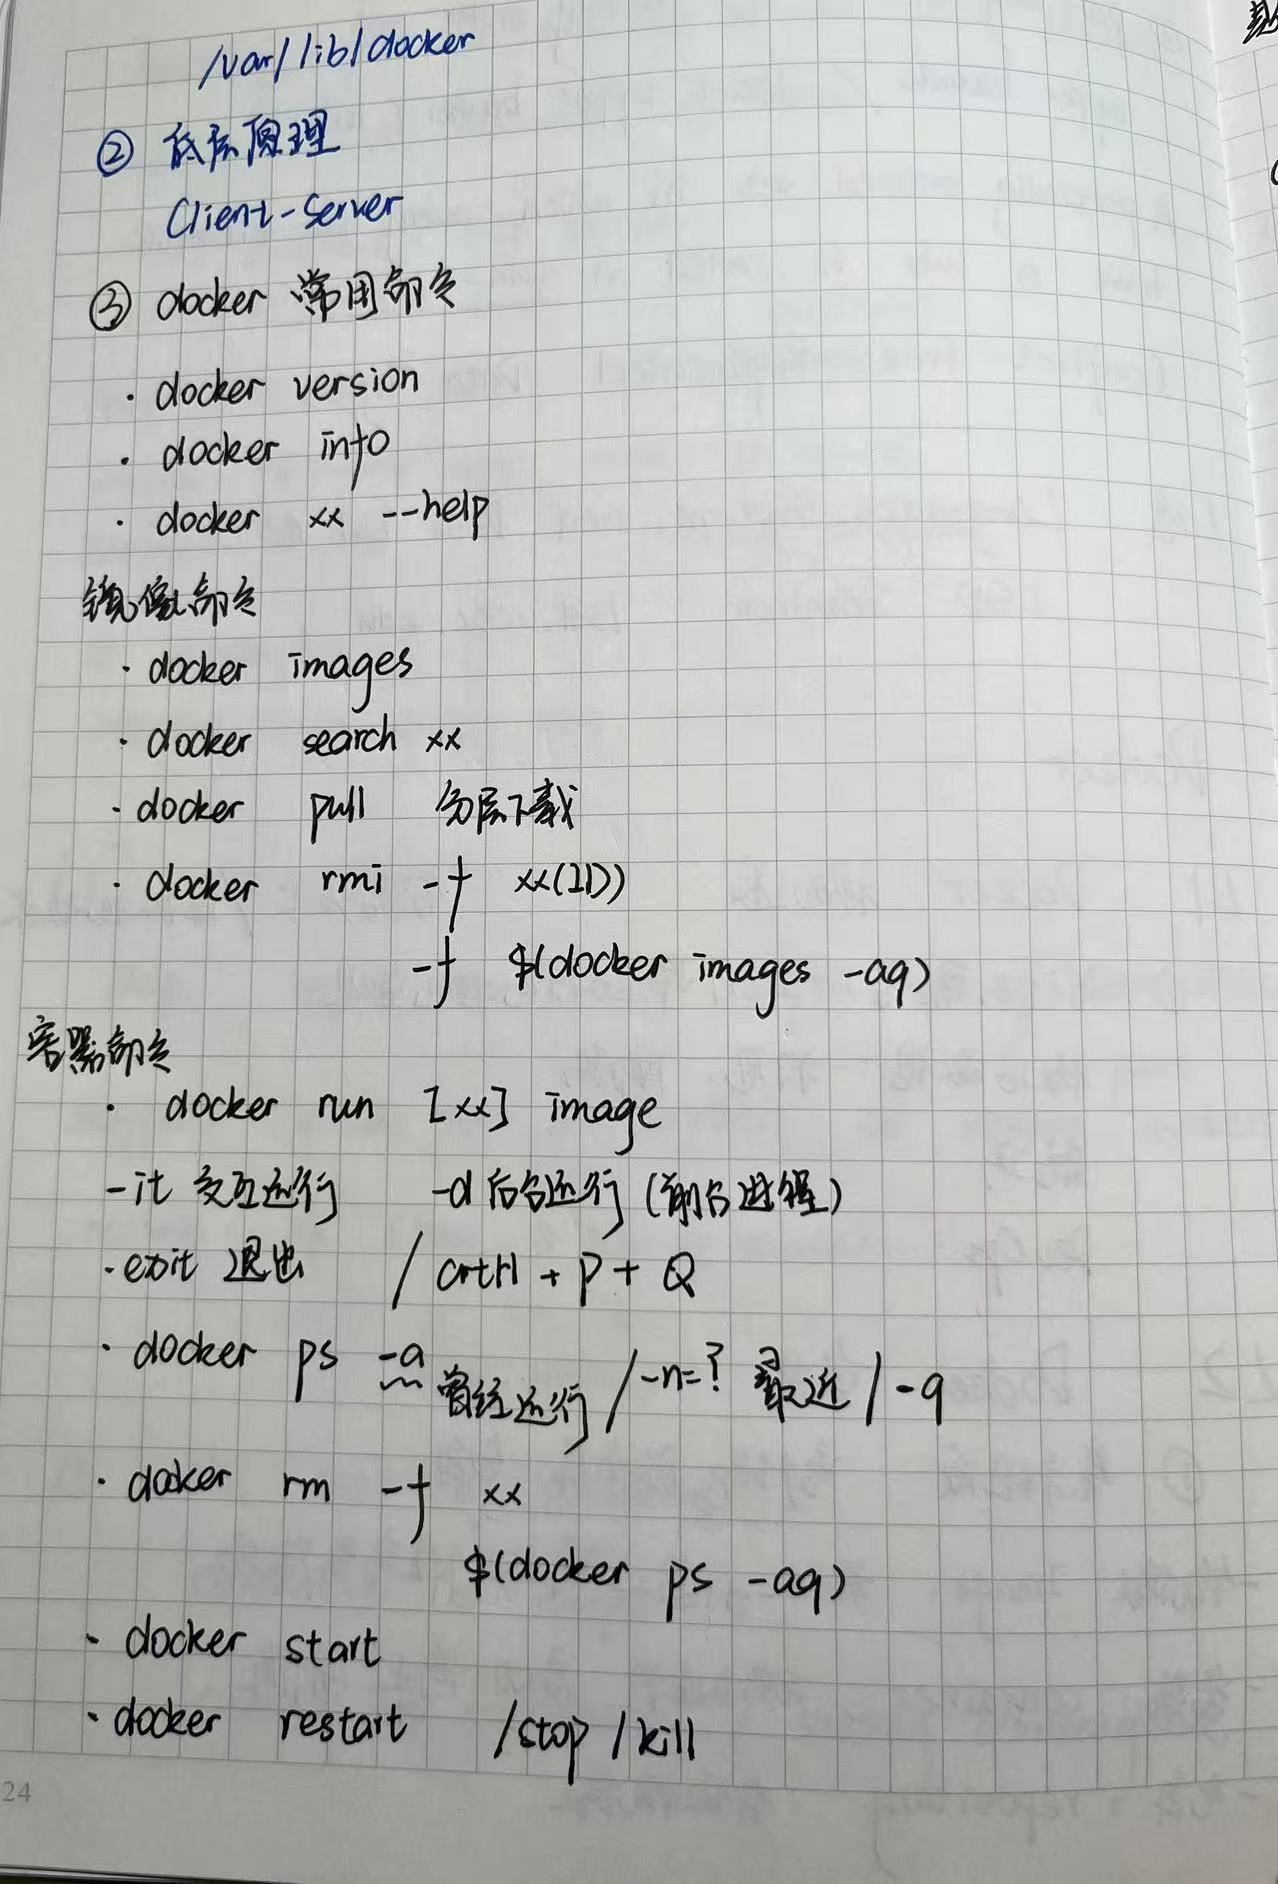 /var/lib/docker
② 底层原理
Client-Server
③ docker 常用命令
· docker version
· docker info
· docker xx --help
镜像命令
· docker images
· docker search xx
· docker pull 分层下载
· docker rmi -f xx(ID)
-f $(docker images -aq)
容器命令
· docker run [xx] image
-it 交互运行 -d 后台运行 (前台进程)
· exit 退出 / crtrl + P + Q
· docker ps -a 曾经运行 / -n=? 最近 / -q
· docker rm -f xx
$(docker ps -aq)
· docker start
· docker restart /stop /kill
24